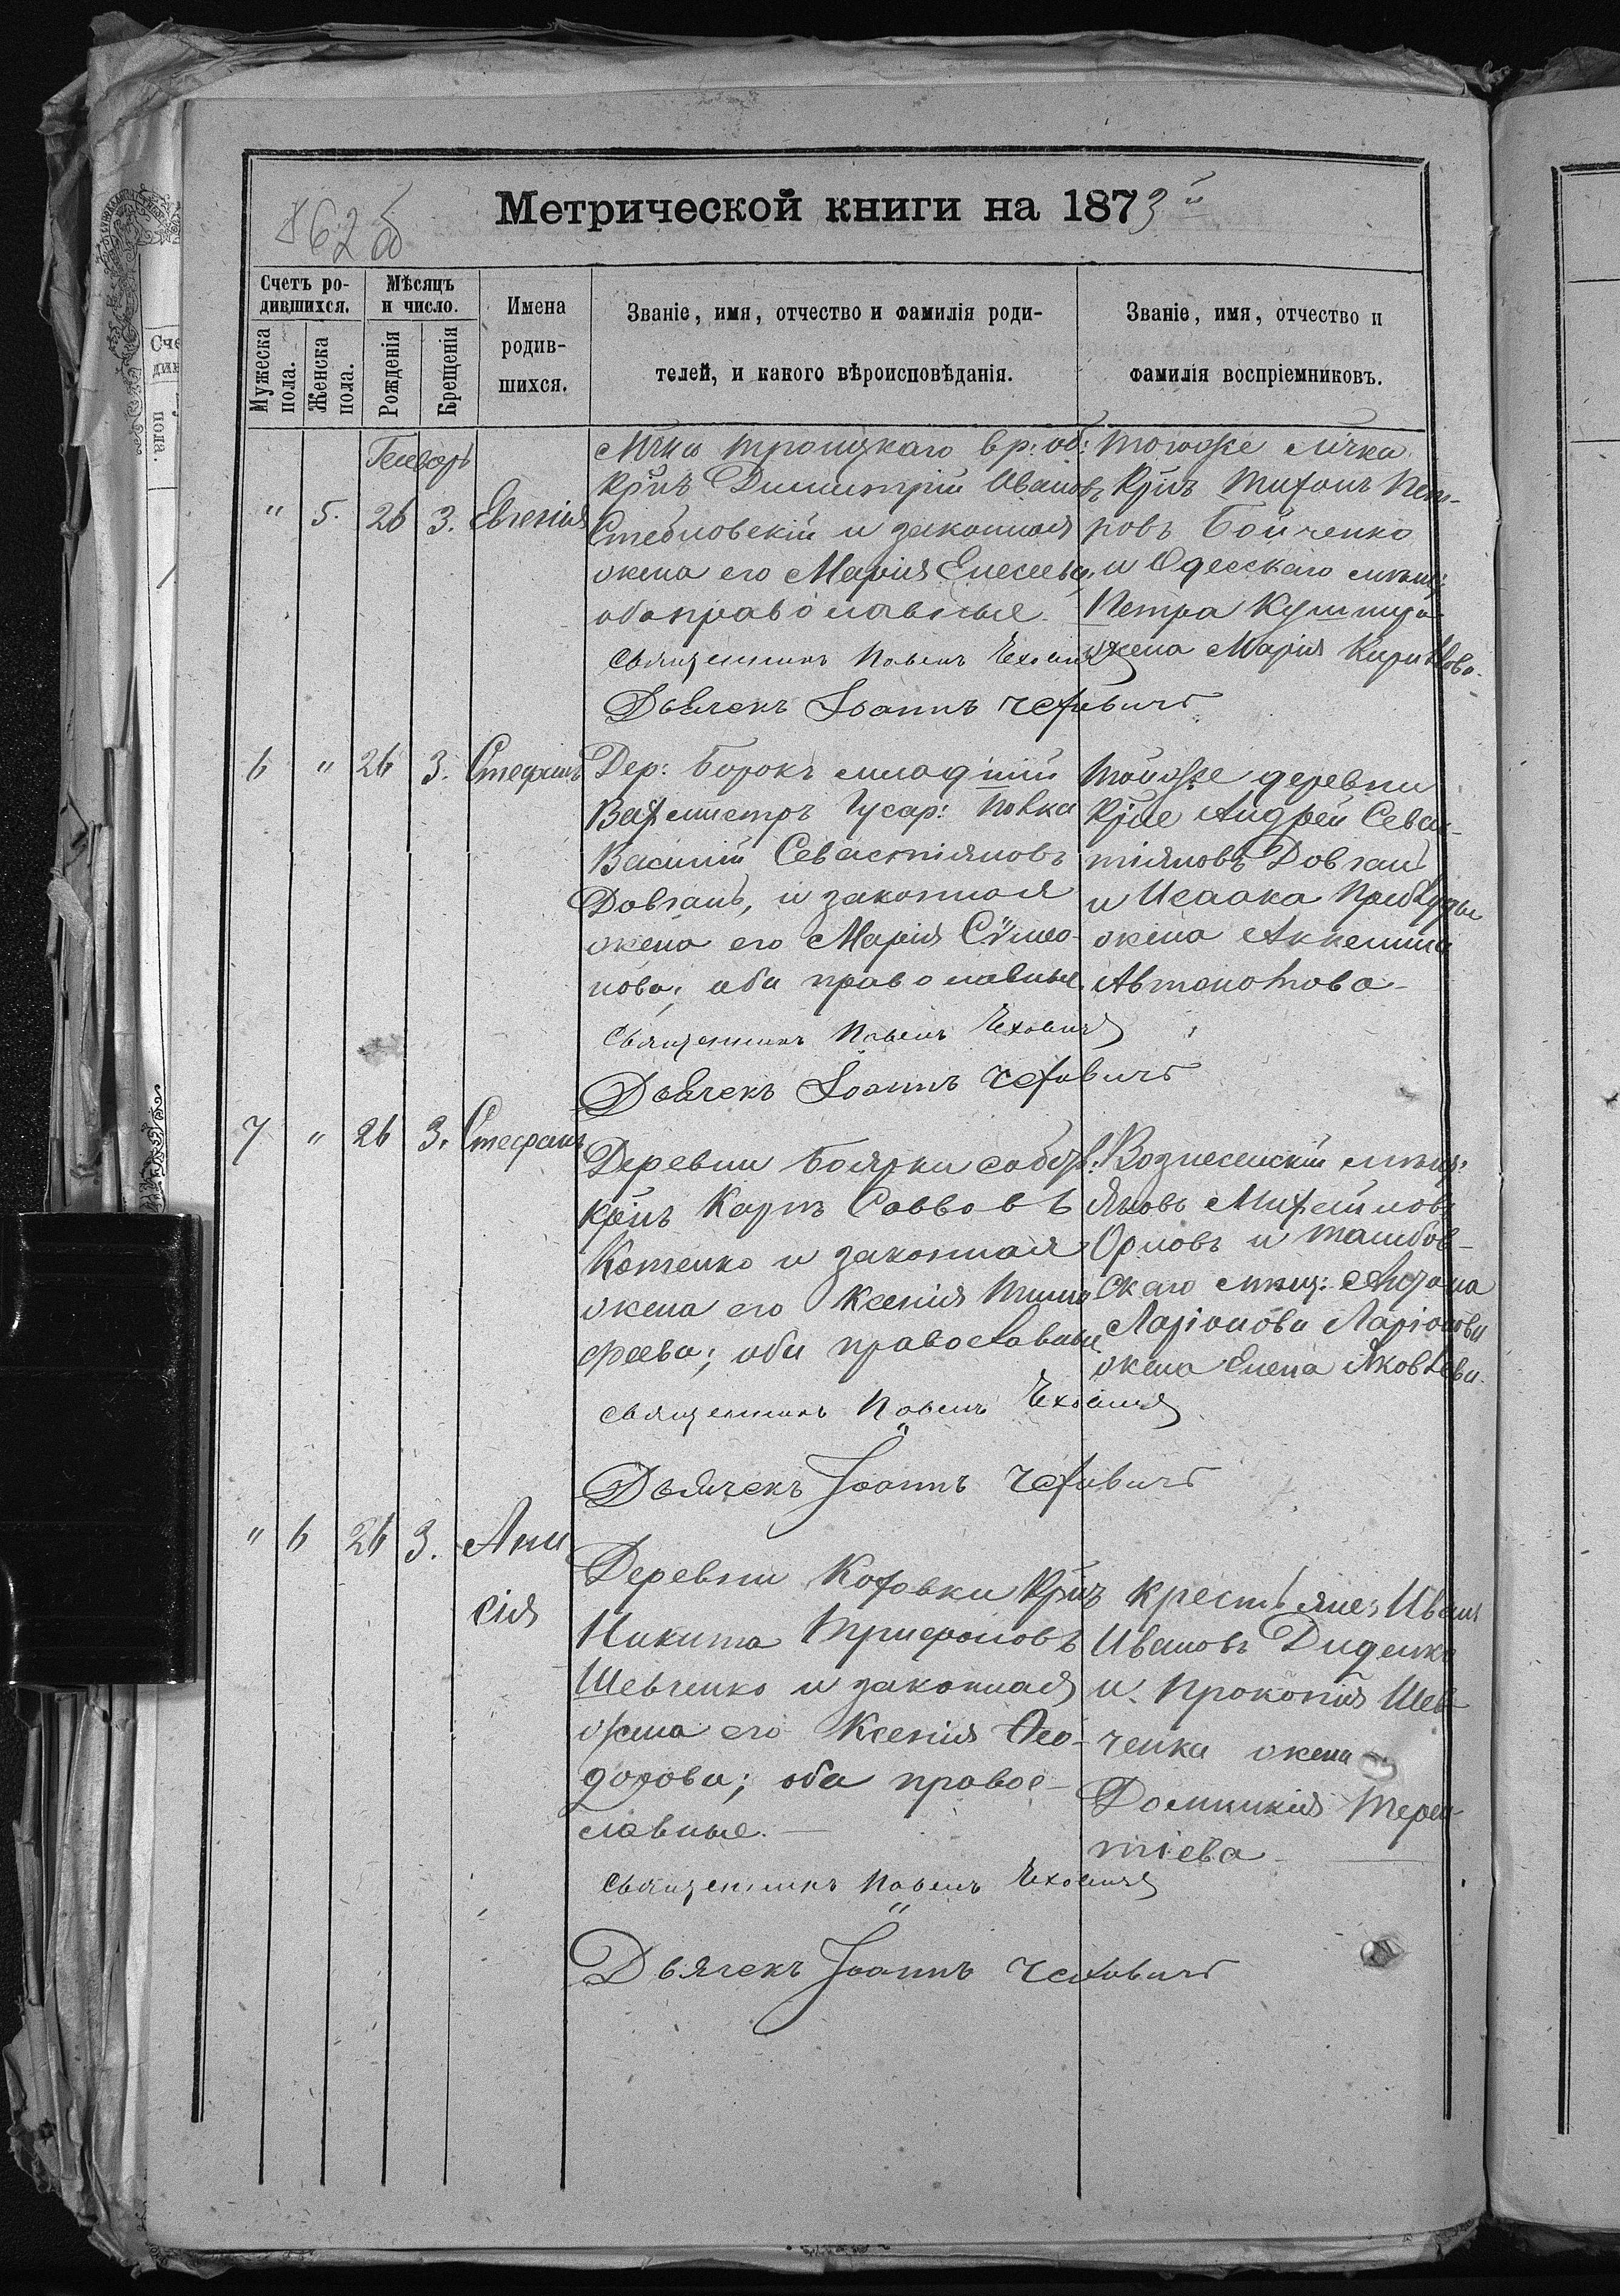 862 об
Метрической книги на 1873й
Счетъ ро-
дившихся.
Мѣсяцъ
и число.
Мужеска
пола.
Женска
пола.
Рожденія
Крещенія
Имена
родив-
шихся.
Званіе, имя, отчество и фамилія роди-
телей, и какого вѣроисповѣданія.
Званіе, имя, отчество и
фамилія воспріемниковъ.
Генварь
" 5. 26 3. Евгенія
Мѣчка Троицкаго вр: об:
крнъ Димитрій Ивановъ
Стебловскій и законная
жена его Марія Елесеева,
оба православные.
Священникъ Павелъ Чехович
Дьячекъ Іоаннъ Чехович
тогоже мѣчка
крнъ Тихонъ Пет-
ровъ Бойченко
и Одесскаго мѣщ:
Петра
жена Марія Кирилова.
6 " 26 3. Стефанъ
Дер: Борокъ младшій
Вахмистръ Гусар: полка
Василій Севастіяновъ
Довгань, и законная
жена его Марія Сѵмео-
нова; оба православные.
Священникъ Павелъ Чехович
Дьячекъ Іоаннъ Чехович
тойже деревни
крне Андрей Севас-
тіяновъ Довгань
и Исаака
жена Акелина
Автономова
7 " 26 3. Стефанъ
Деревни Боярки собств:
крнъ Карпъ Саввовъ
Котенко и законная
жена его Ксенія Тимо
феева; оба православные
Священникъ Павелъ Чехович
Дьячекъ Іоаннъ Чехович
Вознесенскій мѣщ:
Яковъ Михайловъ
Орловъ и тамбов-
скаго мѣщ:
Ларіонова Ларіонова
жена Елена Яковлева.
" 6 26 3. Ани
сія
Деревни Котовки крнъ
Никита Трифоновъ
Шевченко и законная
жена его Ксенія Ѳео-
дорова; оба право-
славные.
Священникъ Павелъ Чехович
Дьячекъ Іоаннъ Чехович
крестьяне: Иванъ
Ивановъ Диденко
и Прокопія Шев
ченка жена
Домникія Терен-
тіева